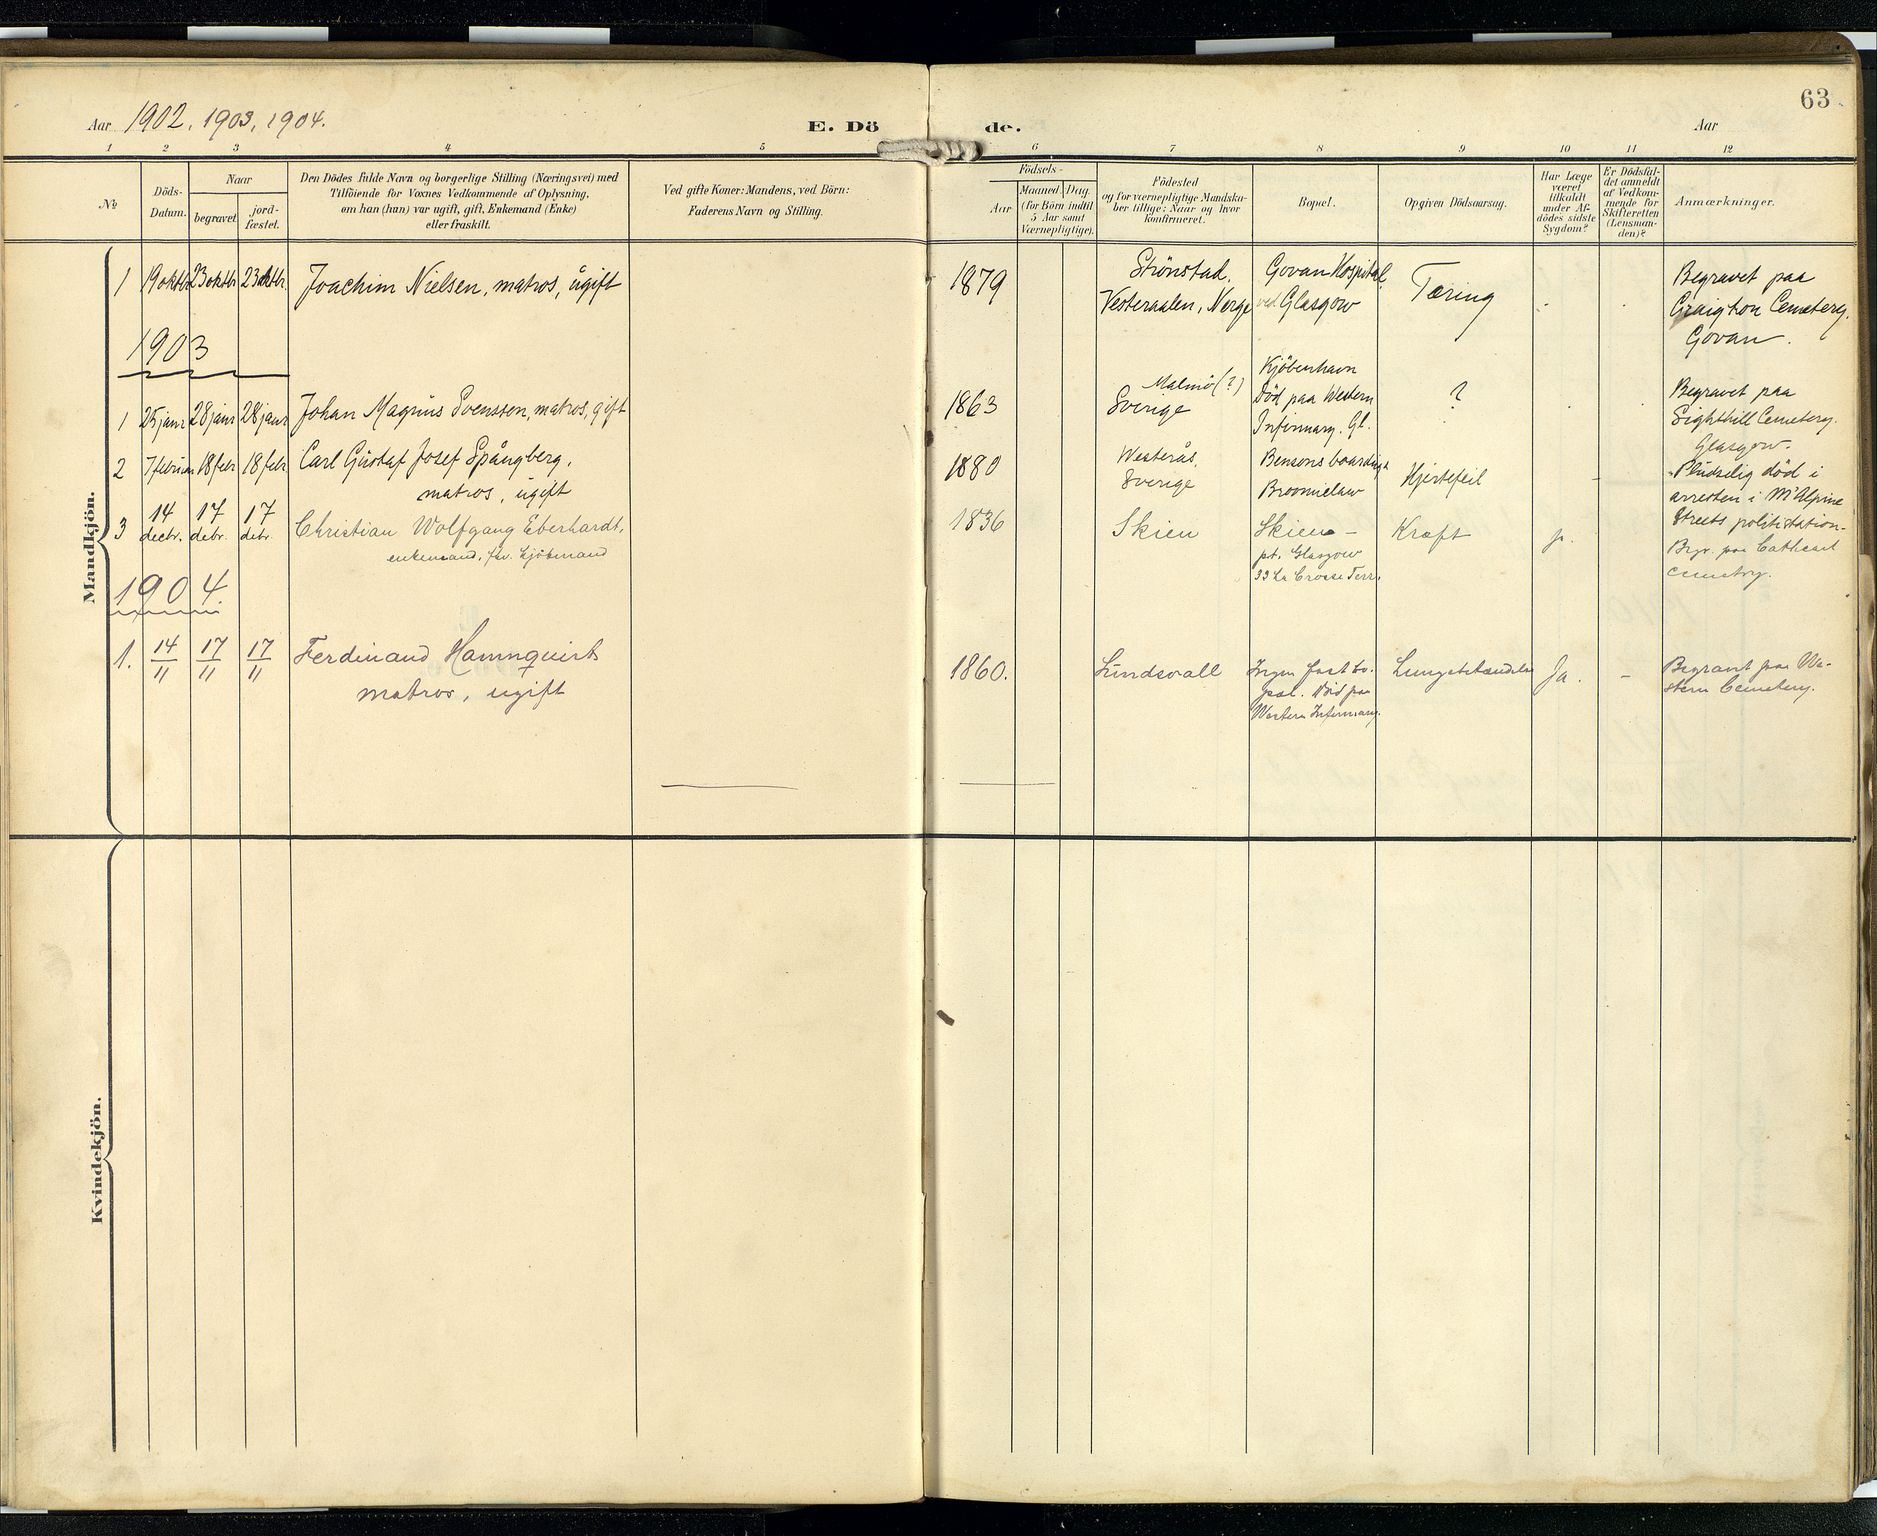 63
Aar 1902, 1903, 1904.
E. Dö de.
Aar
1 2 3 4 5 6 7 8 9 10 11 12
No
Döds-
Datum.
Naar
begravet.
jord-
fæstet.
Den Dödes fulde Navn og borgerlige Stilling (Næringsvei) med
Tilföiende for Voxnes Vedkommende af Oplysning,
om han (hun) var ugift, gift, Enkemand (Enke)
eller fraskilt.
Ved gifte Koner: Mandens, ved Börn:
Faderens Navn og Stilling.
Födsels-
Aar
Maaned. Dag.
(for Börn indtil
5 Aar samt
Værnepligtige).
Födested
og for værnepligtige Mandska-
ber tillige: Naar og hvor
konfirmeret.
Bopæl.
Opgiven Dödsaarsag.
Har Læge
været
tilkaldt
under Af-
dödes sidste
Sygdom?
Er Dödsfal-
det anmeldt
af Vedkom-
mende for
Skifteretten
(Lensman-
den)?
Anmærkninger.
Mandkjön.
1 19 oktbr 23 oktbr 23 oktbr. Joachim Nielsen, matros, ugift
1879
Strönstad,
Vesteraalen, Norge
Govan Hospital,
ved Glasgow
Tæring
Begravet paa
Craigton Cemetery,
Govan.
1903
1 25 janr 28 janr 28 janr Johan Magnus Svensson, matros, gift
1863
Malmö (?)
Sverige
Kjöbenhavn
Död paa Western
Infirmary. Gl.
?
Begravet paa
Sighthill Cemetery.
Glasgow.
2 7 februar 18 febr 18 febr Carl Gustaf Josef Spångberg,
matros, ugift
1880
Westerås,
Sverige
Bensons boarding
Broomielaw
Hjertefeil
-
Pludselig död i
arresten i McAlpine
Streets politistation-
3 14 decbr. 17 debr. 17 debr. Christian Wolfgang Eberhardt,
enkemand, fhv. kjöbmand
1836
Skien
Skien -
pt. Glasgow
33 La Crosse Terr.
Kræft
ja.
Begr. paa Cathcart
Cemetry.
1904.
1. 14/11 17/11 17/11 Ferdinand Hamnquist
matros, ugift
1860.
Sundsvall
Ingen fast bo-
pæl. Död paa
Western Infirmary.
Lungebetændelse
Ja.
-
Begravet paa We-
stern Cemetery.
Kvindekjön.